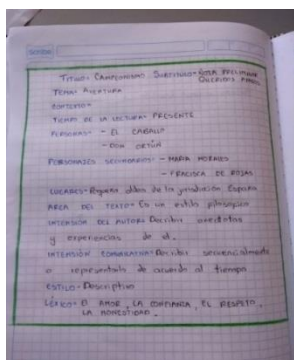 TITULO= CAMPEONISIMO SUBTITULO= ROSA PRELIMINAR
QUERIDOS
TEMA= AVENTURA
CONTEXTO=
TIEMPO DE LA LECTURA= PRESENTE
PERSONAS= - EL CABALLO
- DON ORTUN
PERSONAJES SECUNDARIOS= - MARIA MORALES
- FRACISCA DE ROJAS
LUGARES= Pequeña aldea de la jurisdicion España
AREA DEL TEXTO= Es un estilo filosofico
INTENSIÓN DEL AUTOR= Describir anecdotas
y experiencias de el.
INTENSIÓN COMUNICATIVA= Describir secuencialmente
o representarla de acuerdo al tiempo
ESTILO= Descriptivo
LÉXICO= El AMOR, LA CONFIANZA, EL RESPETO,
LA HONESTIDAD.